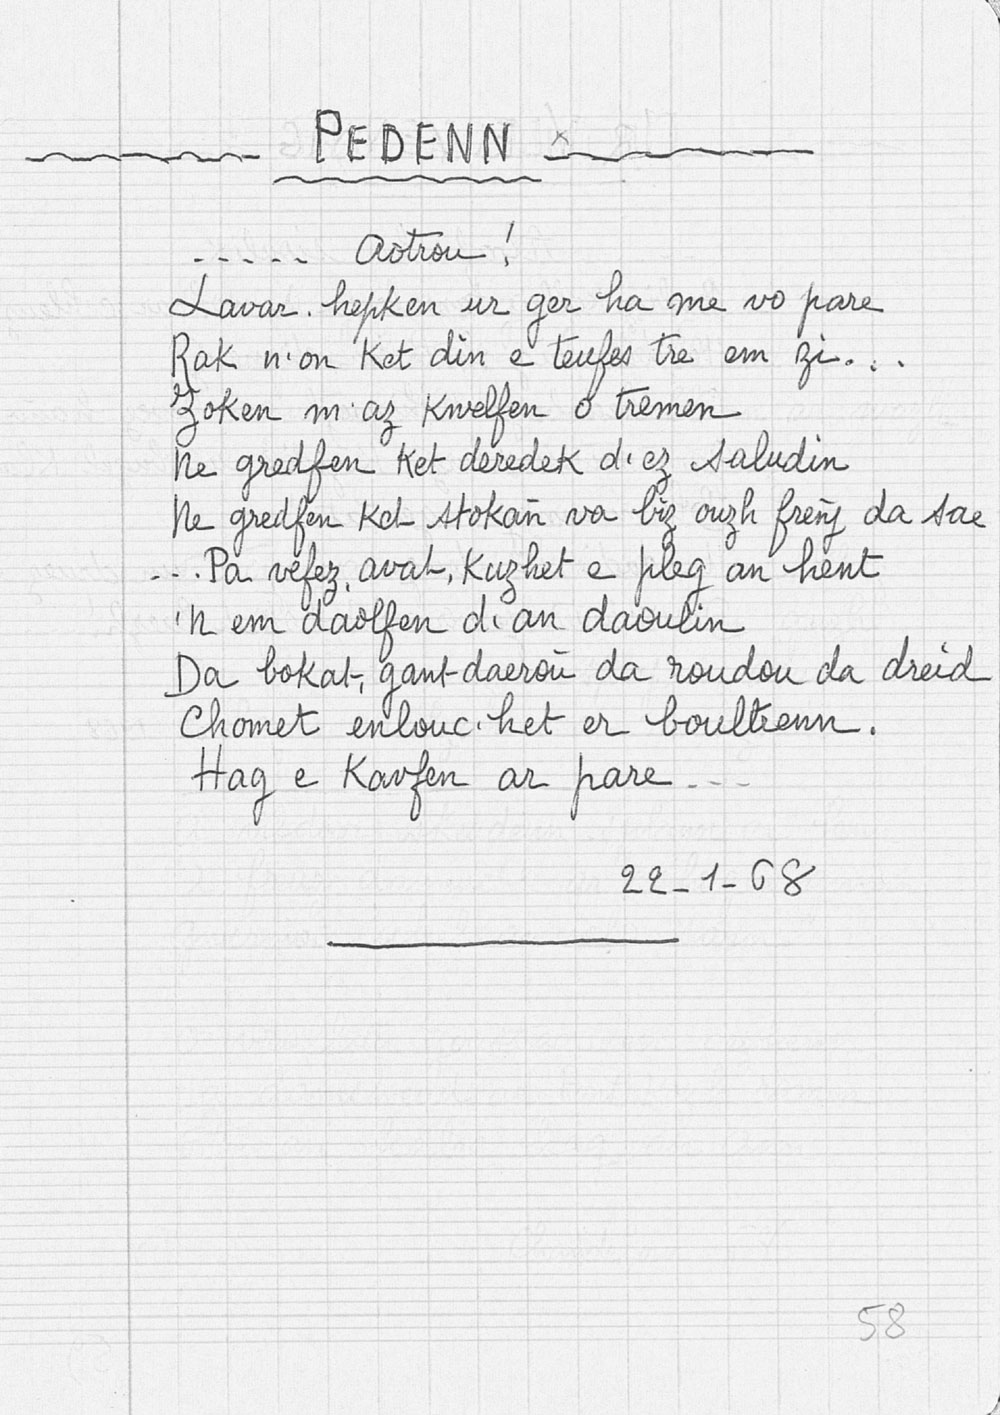 PEDENN
..... Aotrou !
Lavar. hepken ur ger ha me vo pare
Rak n'on ket din e teufes tre em zi...
Zoken m'az kwelfen o tremen
Ne gredfen ket deredek d'ez saludin
Ne gredfen ket stokañ va biz ouzh freñj da sae
...Pa vefez, avat, kuzhet e pleg an hent
'N em daolfen d'an daoulin
Da bokat, gant daeroù da roudou da dreid
Chomet enlouc'het er boultrenn.
Hag e kavfen ar pare ...
22-1-68
58